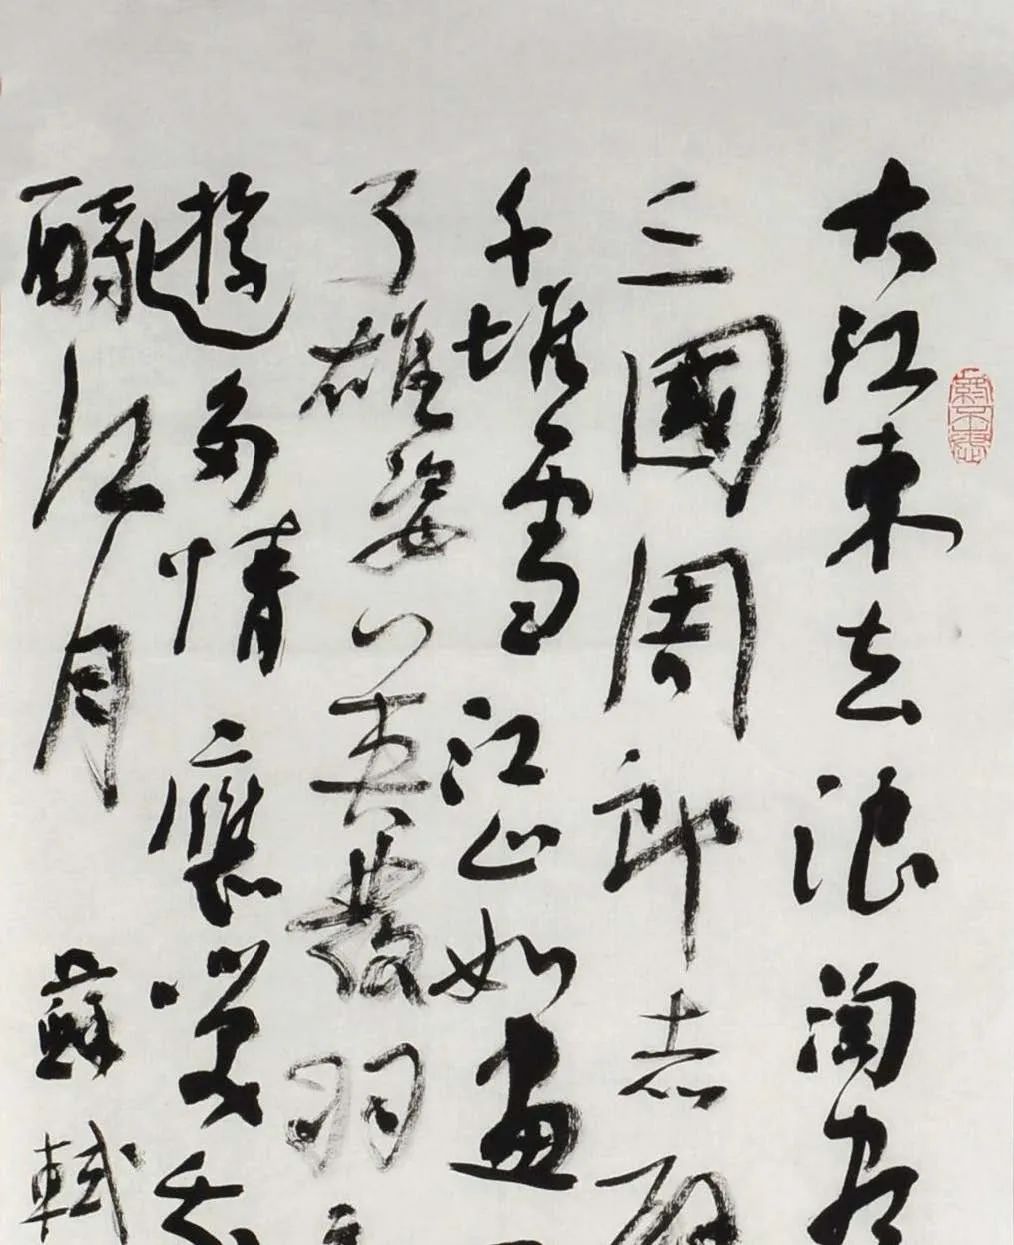 大江東去浪淘盡
三國周郎赤壁
千堆雪江山如畫
了雄姿英發羽
遊多情應笑我
酹江月 蘇軾